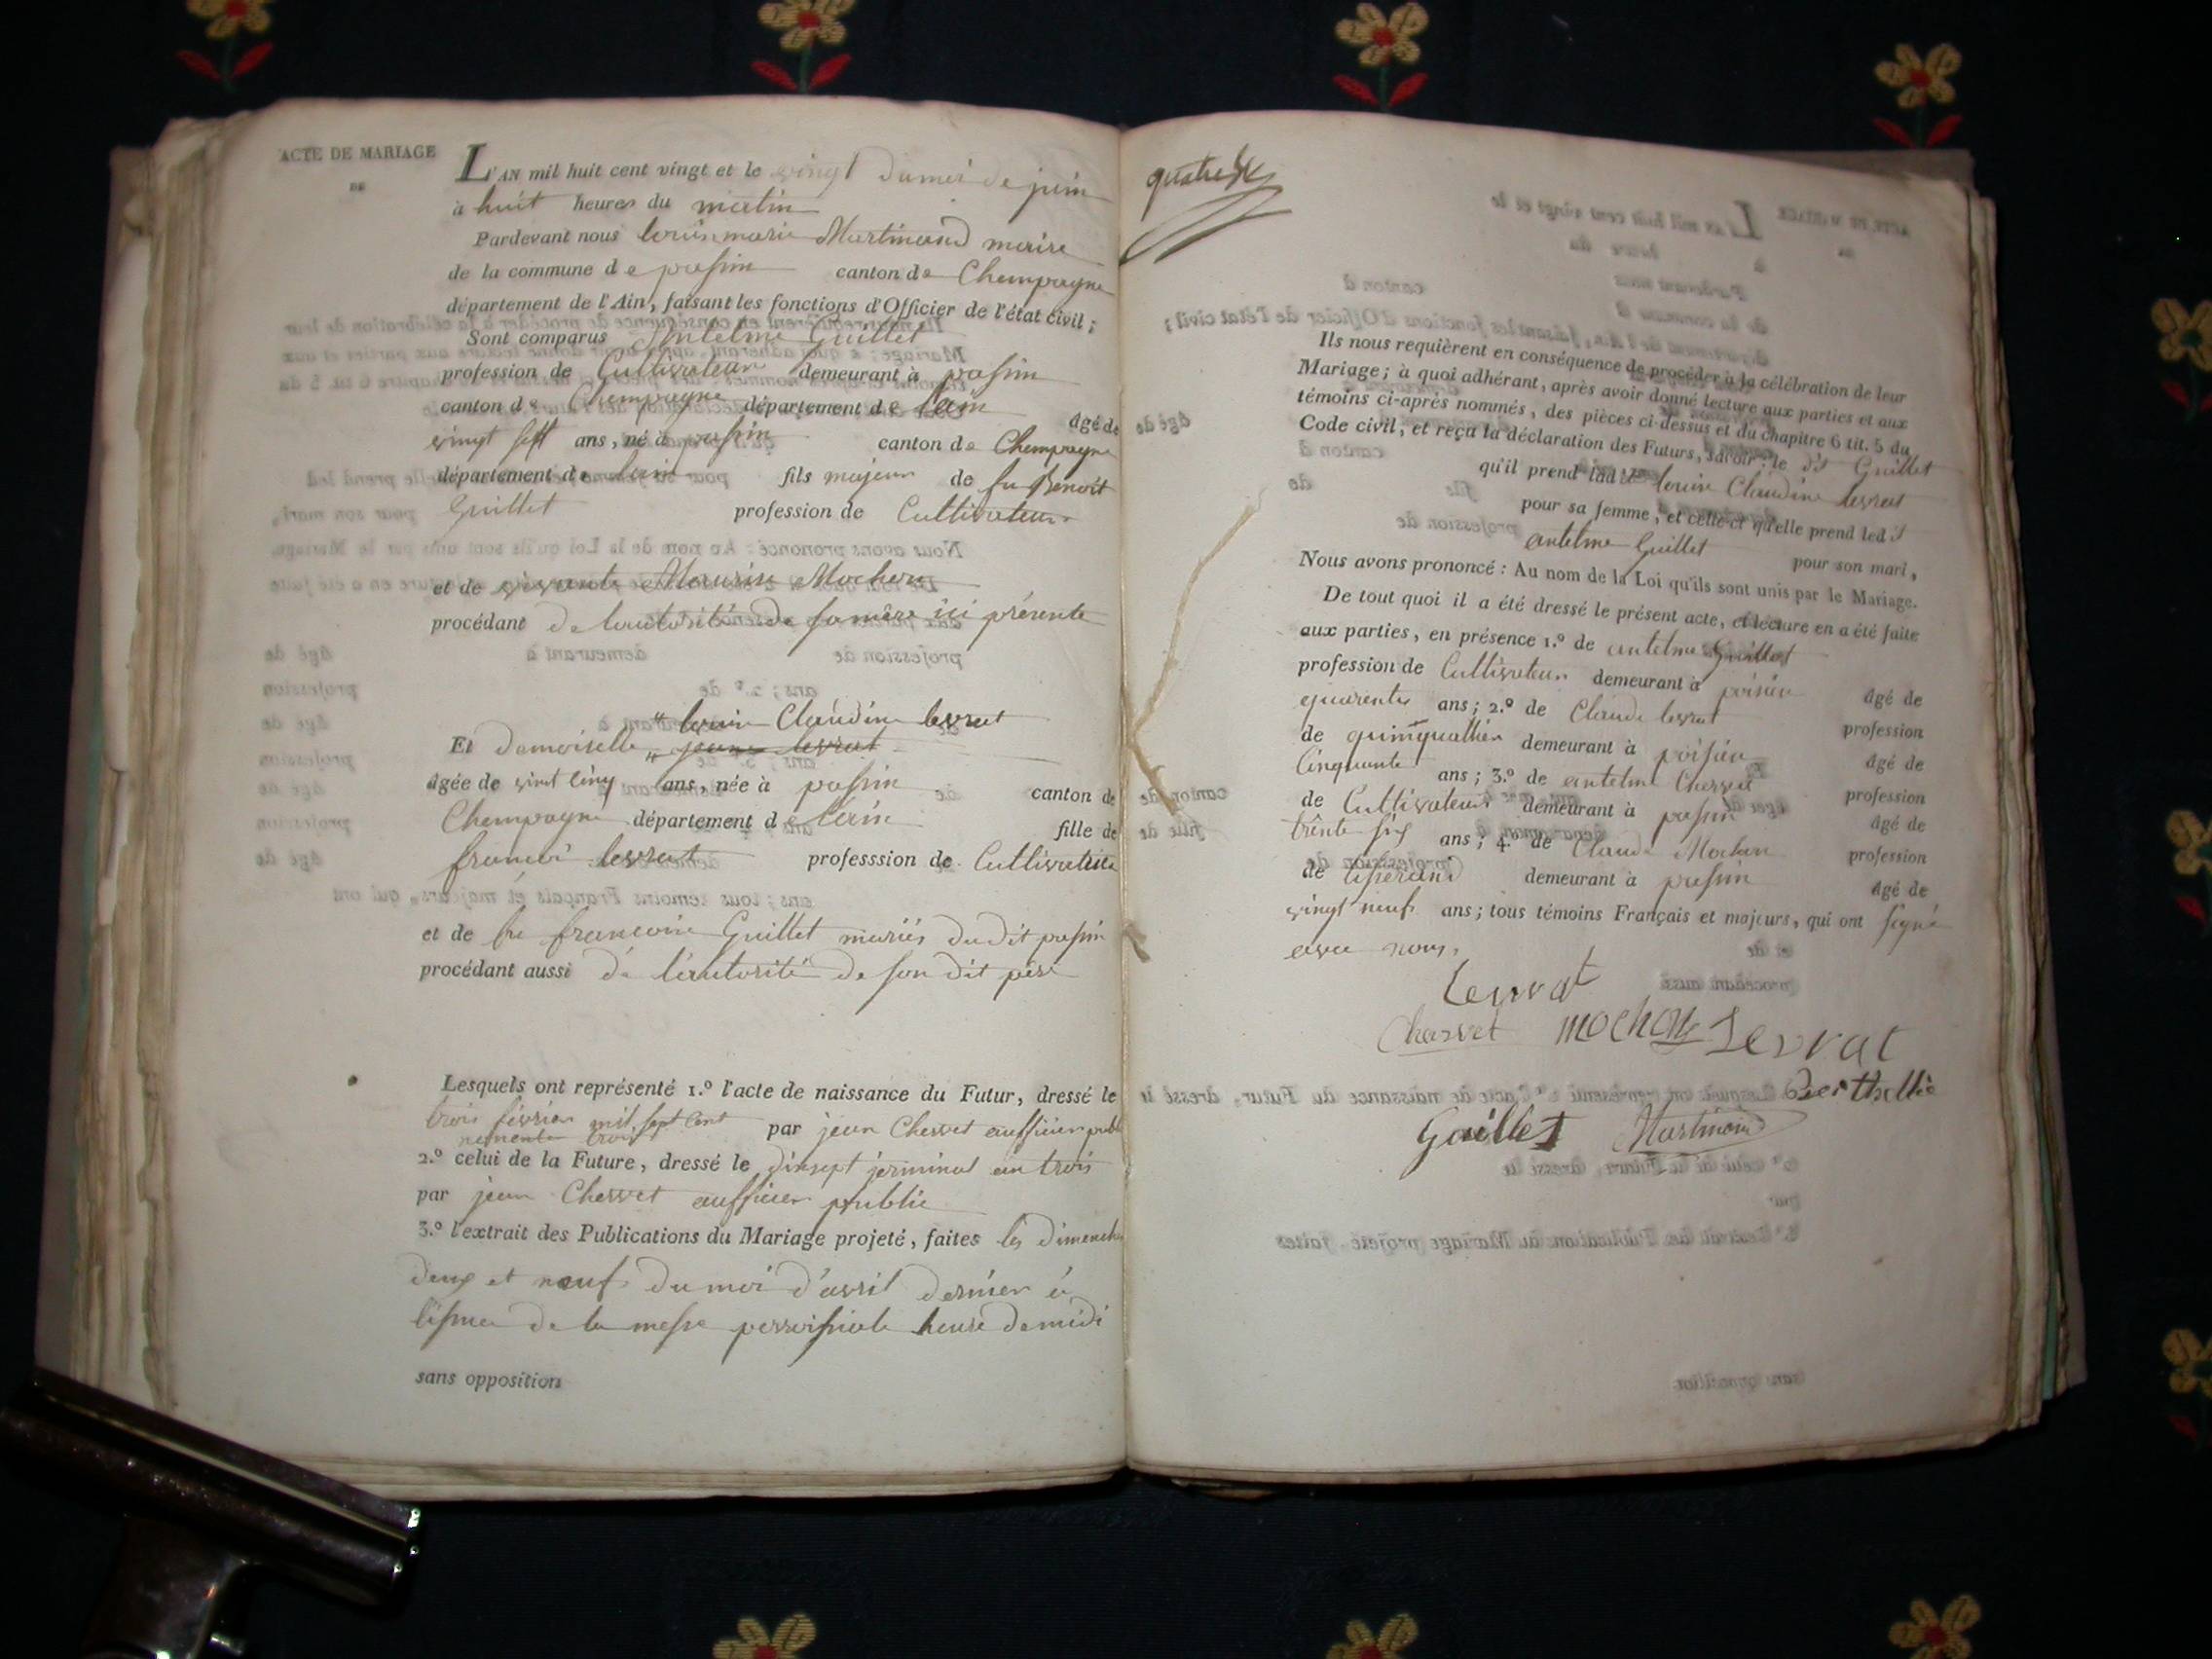 ACTE DE MARIAGE
DE
L'AN mil huit cent vingt et le vingt du moi de juin
à huit heures du matin
Pardevant nous louis marie Martinand maire
de la commune de passin canton de Champagne
département de l'Ain, faisant les fonctions d'Officier de l'état civil;
Sont comparus Antelme Guillet
profession de Cultivateur demeurant à passin
canton de Champagne département de l'ain âgé de
vingt sept ans, né à passin canton de Champagne
département de lain fils majeur de fu Benoit
Guillet profession de Cultivateur
et de vivante Maurise Mochon
procédant de lautorité de sa mère ici présente
" louise Claudine levrat
Et Demoiselle " jeanne levrat
âgée de vint cinq ans, née à passin canton de
Champagne département de lain fille de
francoi levrat professsion de Cultivatrice
et de fu francoise Guillet mariés dudit passin
procédant aussi de l'autorité de son dit père
Lesquels ont représenté 1.º l'acte de naissance du Futur, dressé le
trois février mil sept cent
nonante trois par jean Chervet aufficier publi
2.º celui de la Future, dressé le dixsept jerminal an trois
par jean Chervet aufficier publie
3.º l'extrait des Publications du Mariage projeté, faites les dimenches
deux et neuf du moi d'avril dernier à
lissue de la messe parroissiale heure de midi
sans opposition
Ils nous requièrent en conséquence de procéder à la célébration de leur
Mariage; à quoi adhérant, après avoir donné lecture aux parties et aux
témoins ci-après nommés, des pièces ci-dessus et du chapitre 6 tit. 5 du
Code civil, et reçu la déclaration des Futurs, savoir: le dit Guillet
qu'il prend ladite louise Claudine levrat
pour sa femme, et celle-ci qu'elle prend ledit
antelme Guillet pour son mari,
Nous avons prononcé: Au nom de la Loi qu'ils sont unis par le Mariage.
De tout quoi il a été dressé le présent acte, et lecture en a été faite
aux parties, en présence 1.º de antelme Guillet
profession de Cultivateur demeurant à poisieu âgé de
quarente ans; 2.º de Claude levrat profession
de quinquallier demeurant à poisieu âgé de
Cinquante ans; 3.º de antelme Chervet profession
de Cultivateur demeurant à passin âgé de
trênte six ans; 4.º de Claude Mochon profession
de tisserand demeurant à passin âgé de
vingt neuf ans; tous témoins Français et majeurs, qui ont signé
avec nous.
Levrat
Chervet mochon Levrat
Berthellie
Guillet Martinand